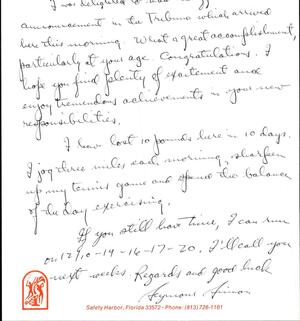 I was delighted to
announcement in the Tribune which arrived
here this morning. What a great accomplishment,
particularly at your age. Congratulations. I
hope you find plenty of excitement and
enjoy tremendous achievements in your new
responsibilities.
I have lost 10 pounds here in 10 days.
I jog three miles each morning, sharpen
up my tennis game and spend the balance
of the day exercising.
If you still have time, I can run
on 12/10-14-16-17-20. I'll call you
next week. Regards and good luck
Seymour Simon
Safety Harbor, Florida 33572 • Phone: (813) 726-1161